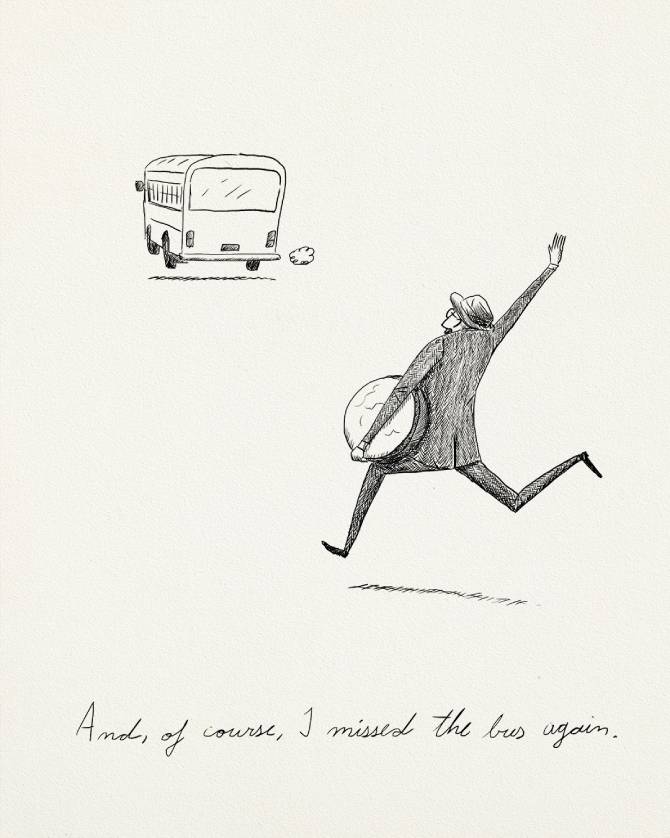 And, of course, I missed the bus again.